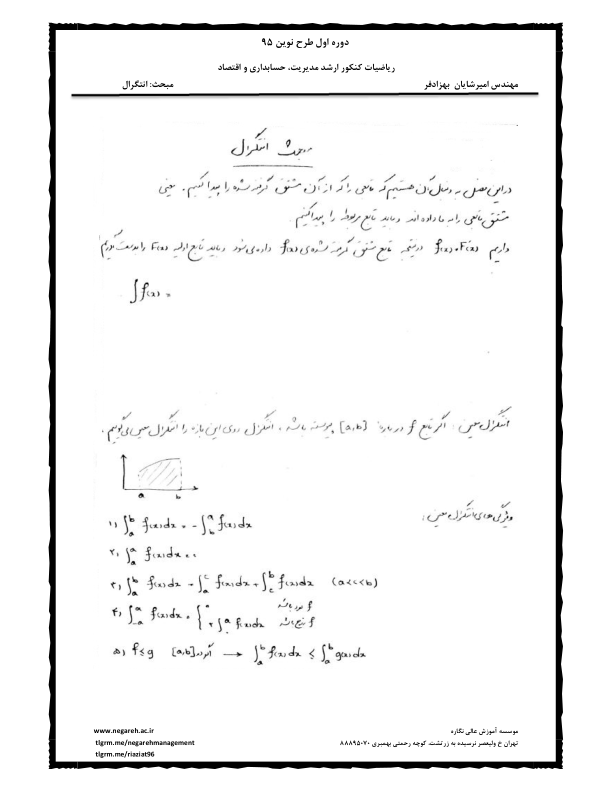 دوره اول طرح نوین ۹۵
ریاضیات کنکور ارشد مدیریت، حسابداری و اقتصاد
مهندس امیرشایان بهزادفر
مبحث: انتگرال
مبحث انتگرال
دراین فصل به دنبال آن هستیم که تابعی را که از آن مشتق گرفته شده را پیدا کنیم. یعنی
مشتق تابعی را به ما داده اند و باید تابع مربوطه را پیدا کنیم.
داریم f(x)=F'(x) درنتیجه تابع مشتق گرفته شده‌ی f(x) داده می‌شود و باید تابع اولیه F(x) را بدست آوریم
∫f(x) =
انتگرال معین: اگر تابع f در بازه [a,b] پیوسته باشد، انتگرال روی این بازه را انتگرال معین می‌گوییم.
a b
ویژگی های انتگرال معین:
۱) ∫_a^b f(x)dx = -∫_b^a f(x)dx
۲) ∫_a^a f(x)dx = ۰
۳) ∫_a^b f(x)dx = ∫_a^c f(x)dx + ∫_c^b f(x)dx (a<c<b)
۴) ∫_{-a}^a f(x)dx = { ۰ f فرد باشد
۲∫_۰^a f(x)dx f زوج باشد
۵) f≤g [a,b] اگر در → ∫_a^b f(x)dx ≤ ∫_a^b g(x)dx
موسسه آموزش عالی نگاره
تهران خ ولیعصر نرسیده به زرتشت. کوچه رحمتی بهمبری ۸۸۸۹۵۰۷۰
www.negareh.ac.ir
tlgrm.me/negarehmanagement
tlgrm.me/riaziat96